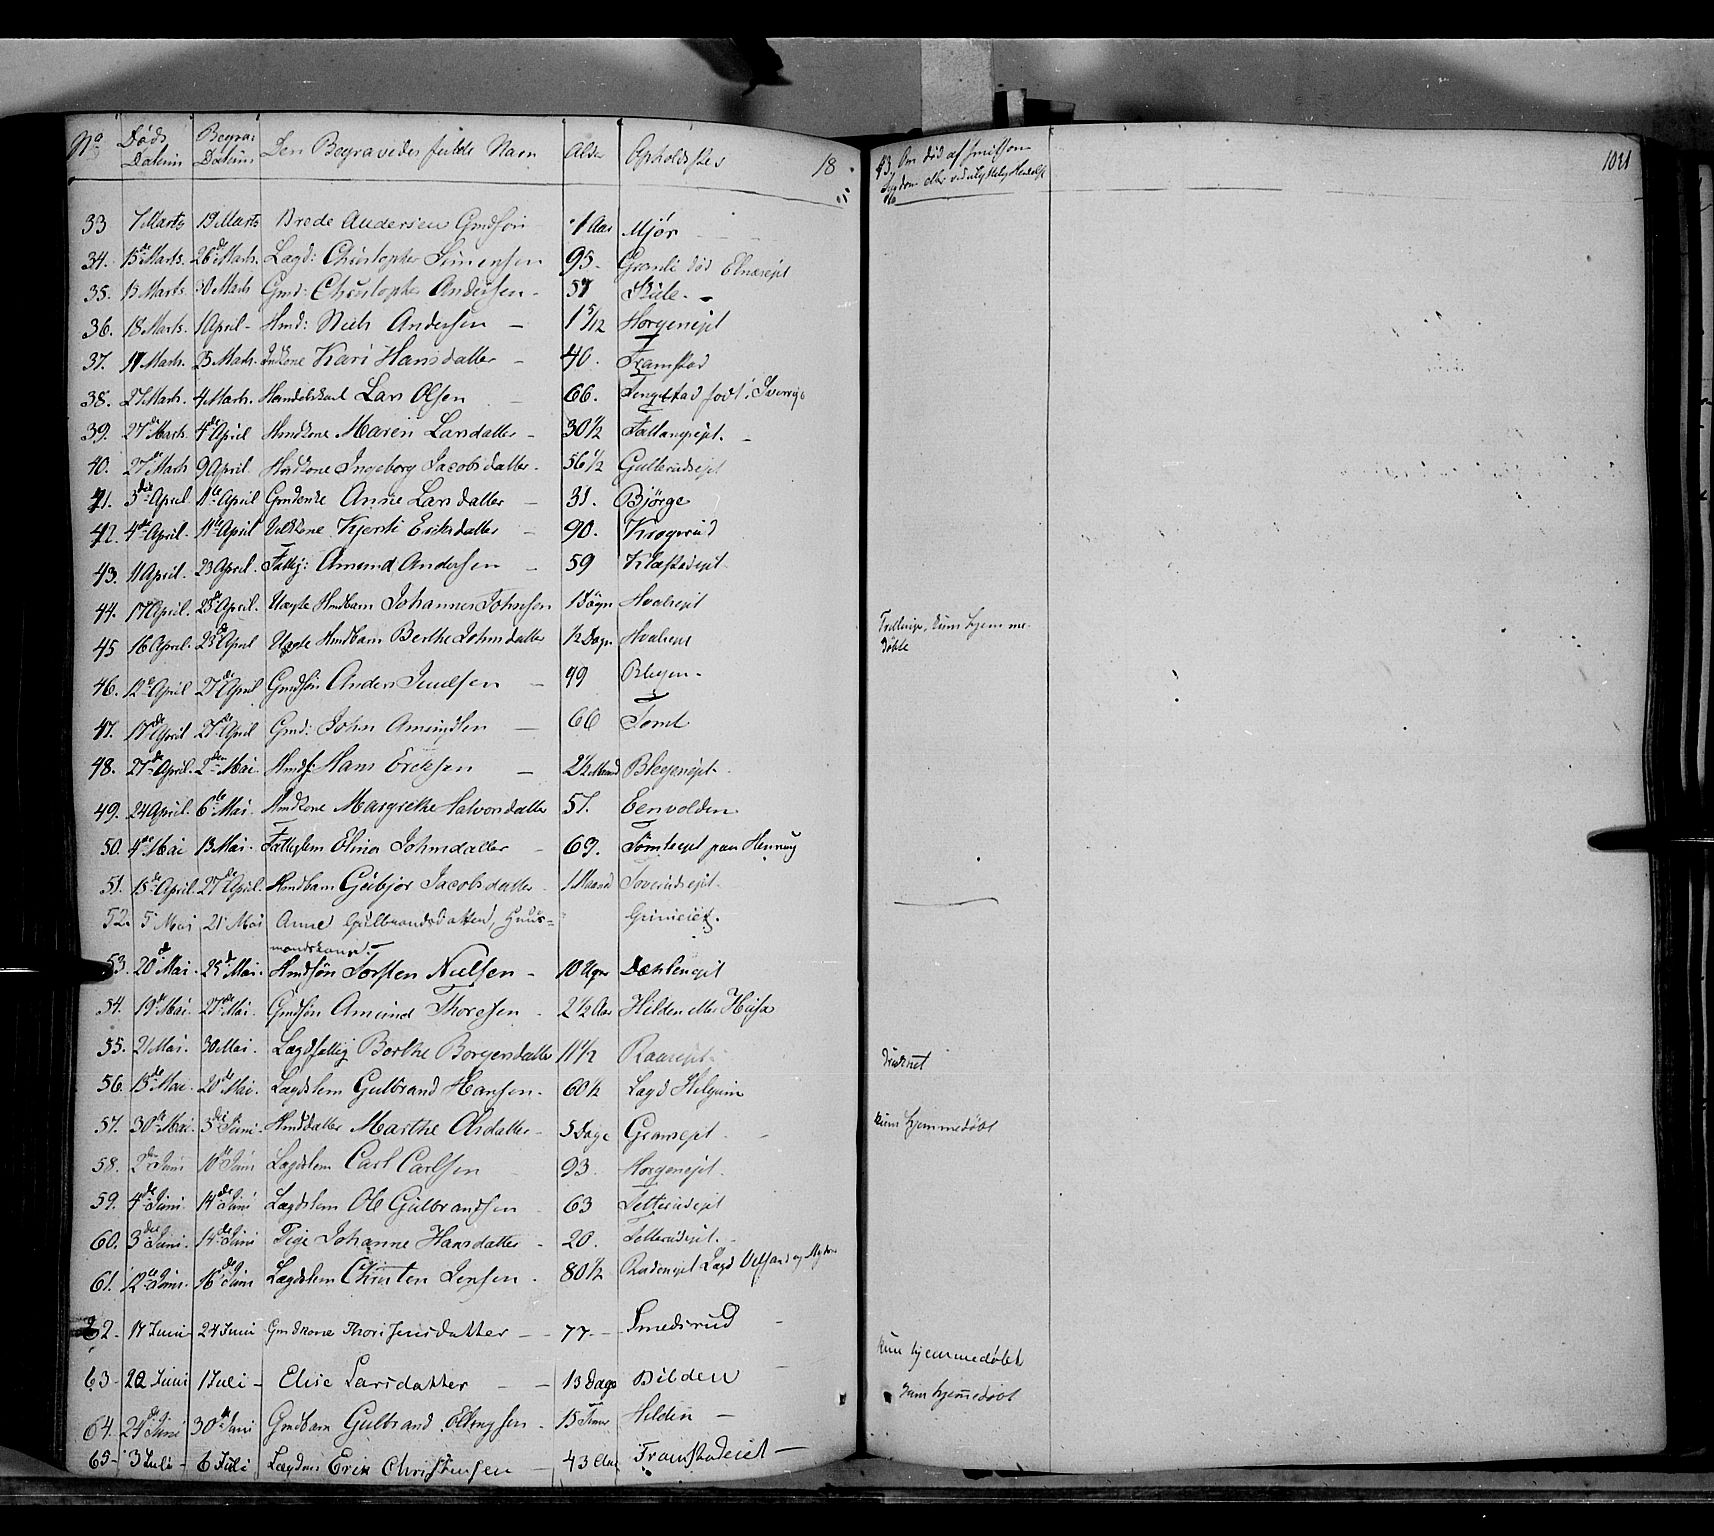 No Døds Datum Begra: Datum Den Begravedes fulde Navn Alder Opholdssted 18
33 7 Marts 19 Marts Brede Andersen Gmdsøn 1 Aar Mjør
34. 15de Marts. 26de Marts. Lægd: Christopher Simensen 93. død
35. 13 Marts Marts Gmd: Christopher Andersen 57
36. 18 Marts. 1 April Hmd: Niels Andersen 1 5/12 Horgenejet
37. 17 Marts. 23 Marts. Kari Hansdatter 40. Framstad
38. 27 Marts. 4 Marts. Lars Olsen 66. Tingelstad født i Sverrige
39. 27de Marts. 4de April Hmdkone Maren Larsdatter 30 1/2
40. 27de Marts 9 April. Hmdkone Ingeborg Jacobsdatter. 56 1/2 Gullerudsejet
41. 3die April 11te April Anne Larsdatter 31. Bjørge
42. 4de April. 11te April Kjersti Eriksdatter 90. Krogsrud
43. 11 April. 23 April. Fattig: Amund Andersen 59 Klæstadejet
44. 17 April. 25de April. Uægte Hmdbarn Johannes Johnsen 1 Døgn Hvalsejet
45 16 April. 25de April Uægte Hmdbarn Berthe Johnsdatter 1/2 Døgn
46. 12te April 27de April Gmdsøn Anders Juulsen 99 Blegen
47. 17de April 27de April Gmd: John Amundsen 66 Tomt
48. 27de April. 2den Mai. Hmds: Hans Ericksen 2 1/2 Maaned Blegenejet
49. 24 April. 6te Mai. Hmdkone Margrethe Halvorsdatter 51. Eenvolden
50. 4de Mai 13 Mai. Fattiglem Elina Johnsdatter 69. Tomteejet paa Hennung
51. 15de April. 27de April. Hmdbarn Gubjør Jacobsdatter 1 Maaned Toverudsejet.
52. 5 Mai 21 Mai Anne Gulbrandsdatter, Huusmandskone Grinieiet.
53. 20de Mai. 25de Mai. Hmdsøn Torsten Nielsen 10 Uger Dæhlenejet
54. 19de Mai. 27de Mai. Gmdsøn Amund Thoresen 2 1/2 Aar Hilden eller
55. 21 Mai. 30 Mai. Lægdfattig Berthe Borgersdatter 11 1/2
56. 15de Mai. 20de Mai. Lægdslem Gulbrand Hansen. 60 1/2 Lægd Helgum
57. 30te Mai. 5die Juni. Hmddatter Marthe Olsdatter 5 Dage Gransejet
58. 2den Juni 10de Juni Lægdslem Carl Carlsen 93. Horgenejet.
59. 4de Juni. 14de Juni Lægdslem Ole Gulbrandsen 63 Tetterudejet
60. 3die Juni. 14de Juni Pige Johanne Hansdatter 20. Tetterudejet.
61. 12te Juni. 16de Juni Lægdslem Christen Jensen 80 1/2 Lægd
62 17 Juni 24 Juni Gmdkone Thori Jensdatter 77 Smedsrud
63 22 Juni 1 Juli Elise Larsdatter 13 Dage Bilden
64. 24de Juni 30te Juni Gmdbarn Gulbrand Ellingsen 15 Timer Hilden
65 3 Juli 6 Juli Erik Christensen 43 Aar Framstadeiet
Om død af smitsom Sygdom eller ved ulykkelig Hendelse
1021
Tvillinge, kun hjemmedøbte
druknet
kun hjemmedøbt
kun hjemmedøbt
kun hjemmedøbt